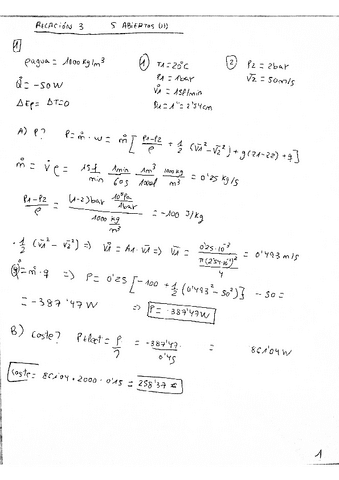 RELACIÓN 3 S. ABIERTOS (II)
1
ρagua = 1000 kg/m³
Q̇ = -50W
ΔEp = ΔT = 0
① T1 = 20°C
P1 = 1bar
V̇1 = 15l/min
D1 = 1" = 2'54cm
② P2 = 2bar
v2 = 50m/s
A) P? P = ṁ · w = ṁ [ (P1-P2)/ρ + 1/2 (v1² - v2²) + g(z1-z2) + q ]
ṁ = V̇ρ = 15 l/min · 1min/60s · 1m³/1000l · 1000kg/m³ = 0'25 kg/s
(P1-P2)/ρ = (1-2)bar · 10⁵Pa/1bar / 1000 kg/m³ = -100 J/kg
· 1/2 (v1² - v2²) => V̇1 = A1 · v1 => v1 = 0'25·10⁻³ / (π(2'54·10⁻²)²/4) = 0'493 m/s
Q̇ = ṁ · q => P = 0'25 [ -100 + 1/2 (0'493² - 50²) ] - 50 =
= -387'47W => P = -387'47W
B) Coste? Pelect = P/η = -387'47/0'45 = 861'04W
Coste = 861'04 · 2000 · 0'15 = 258'37 €
1